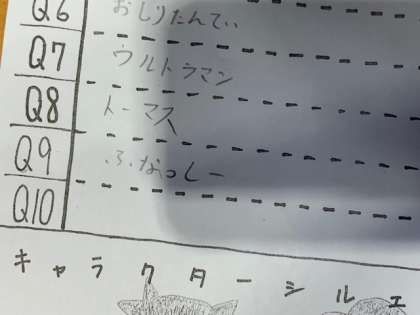 Q6 おしりたんてい
Q7 ウルトラマン
Q8 トーマス
Q9 ふなっしー
Q10
キャラクターシルエ